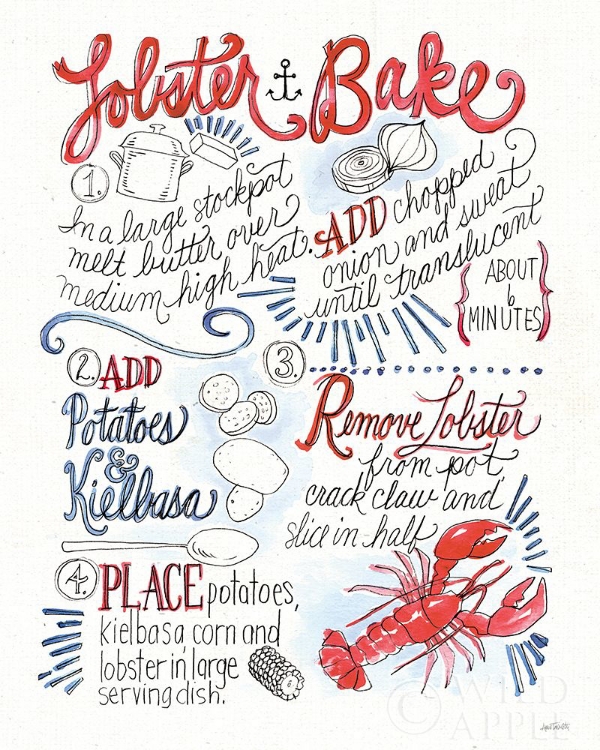 Lobster Bake
1.
In a large stockpot
melt butter over
medium high heat.
ADD chopped
onion and sweat
until translucent
{ABOUT
6
MINUTES}
2. ADD
Potatoes
&
Kielbasa
3.
Remove Lobster
from pot,
crack claw and
slice in half
4. PLACE potatoes,
kielbasa, corn and
lobster in large
serving dish.
WILD
APPLE